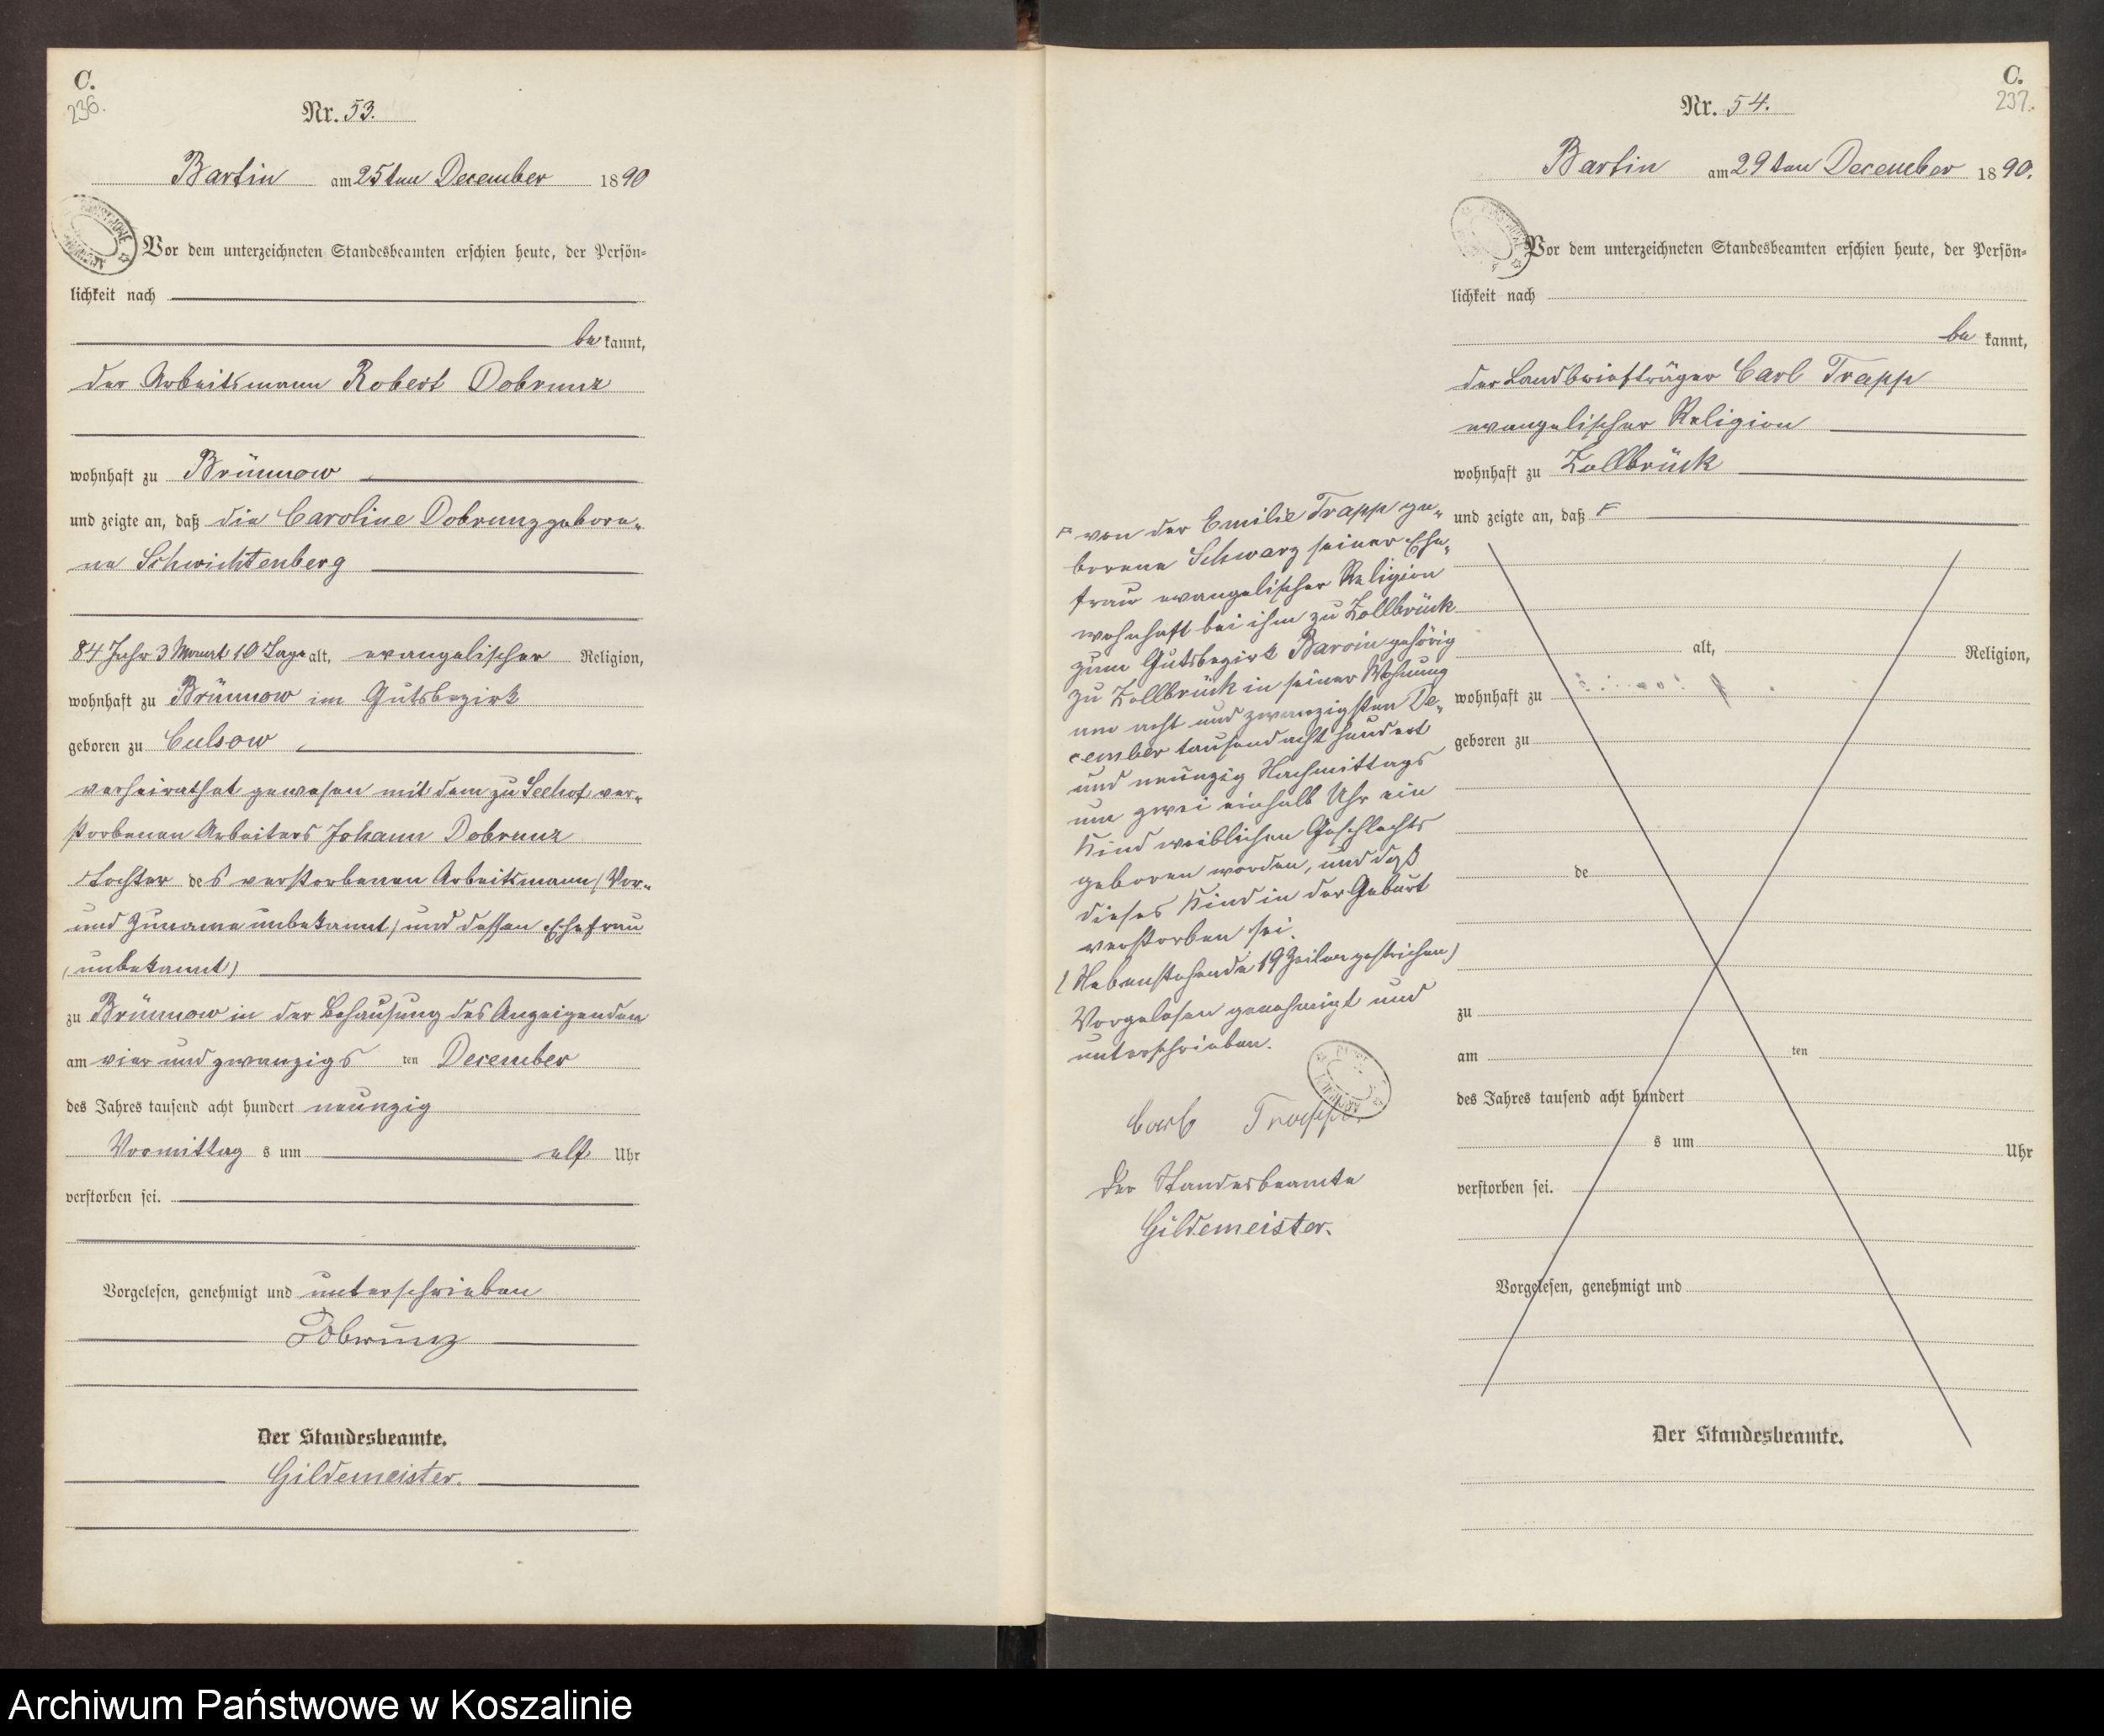 C.
236.
Nr. 53.
Bartin am 25ten December 1890
Vor dem unterzeichneten Standesbeamten erschien heute, der Persön-
lichkeit nach
be kannt,
der Arbeitsmann Robert Dobrunz
wohnhaft zu Brünnow
und zeigte an, daß die Caroline Dobrunz gebore-
ne Schwichtenberg
84 Jahr 3 Monat 10 Tage alt, evangelischer Religion,
wohnhaft zu Brünnow im Gutsbezirk
geboren zu Culsow
verheirathet gewesen mit dem zu Seehof ver-
storbenen Arbeiters Johann Dobrunz
Tochter des verstorbenen Arbeitsmann (Vor-
und Zuname unbekannt) und dessen Ehefrau
(unbekannt)
zu Brünnow in der Behausung des Anzeigenden
am vier und zwanzigs ten December
des Jahres tausend acht hundert neunzig
Vormittag s um elf Uhr
verstorben sei.
Vorgelesen, genehmigt und unterschrieben
Dobrunz
Der Standesbeamte.
Gildemeister.
C.
237.
Nr. 54.
Bartin am 29ten December 1890.
Vor dem unterzeichneten Standesbeamten erschien heute, der Persön-
lichkeit nach
be kannt,
der Landbriefträger Carl Trapp
evangelischer Religion
wohnhaft zu Zollbrück
und zeigte an, daß F
F von der Emilie Trapp ge-
borene Schwarz seiner Ehe-
frau evangelischer Religion
wohnhaft bei ihm zu Zollbrück
zum Gutsbezirk Barvin gehörig
zu Zollbrück in seiner Wohnung
am acht und zwanzigsten De-
cember tausend acht hundert
und neunzig Nachmittags
um zwei einhalb Uhr ein
Kind weiblichen Geschlechts
geboren worden, und daß
dieses Kind in der Geburt
verstorben sei.
(Nebenstehende 19 Zeilen gestrichen)
Vorgelesen genehmigt und
unterschrieben.
Carl Trapp.
Der Standesbeamte
Gildemeister.
alt, Religion,
wohnhaft zu
geboren zu
de
zu
am ten
des Jahres tausend acht hundert
s um Uhr
verstorben sei.
Vorgelesen, genehmigt und
Der Standesbeamte.
Archiwum Państwowe w Koszalinie